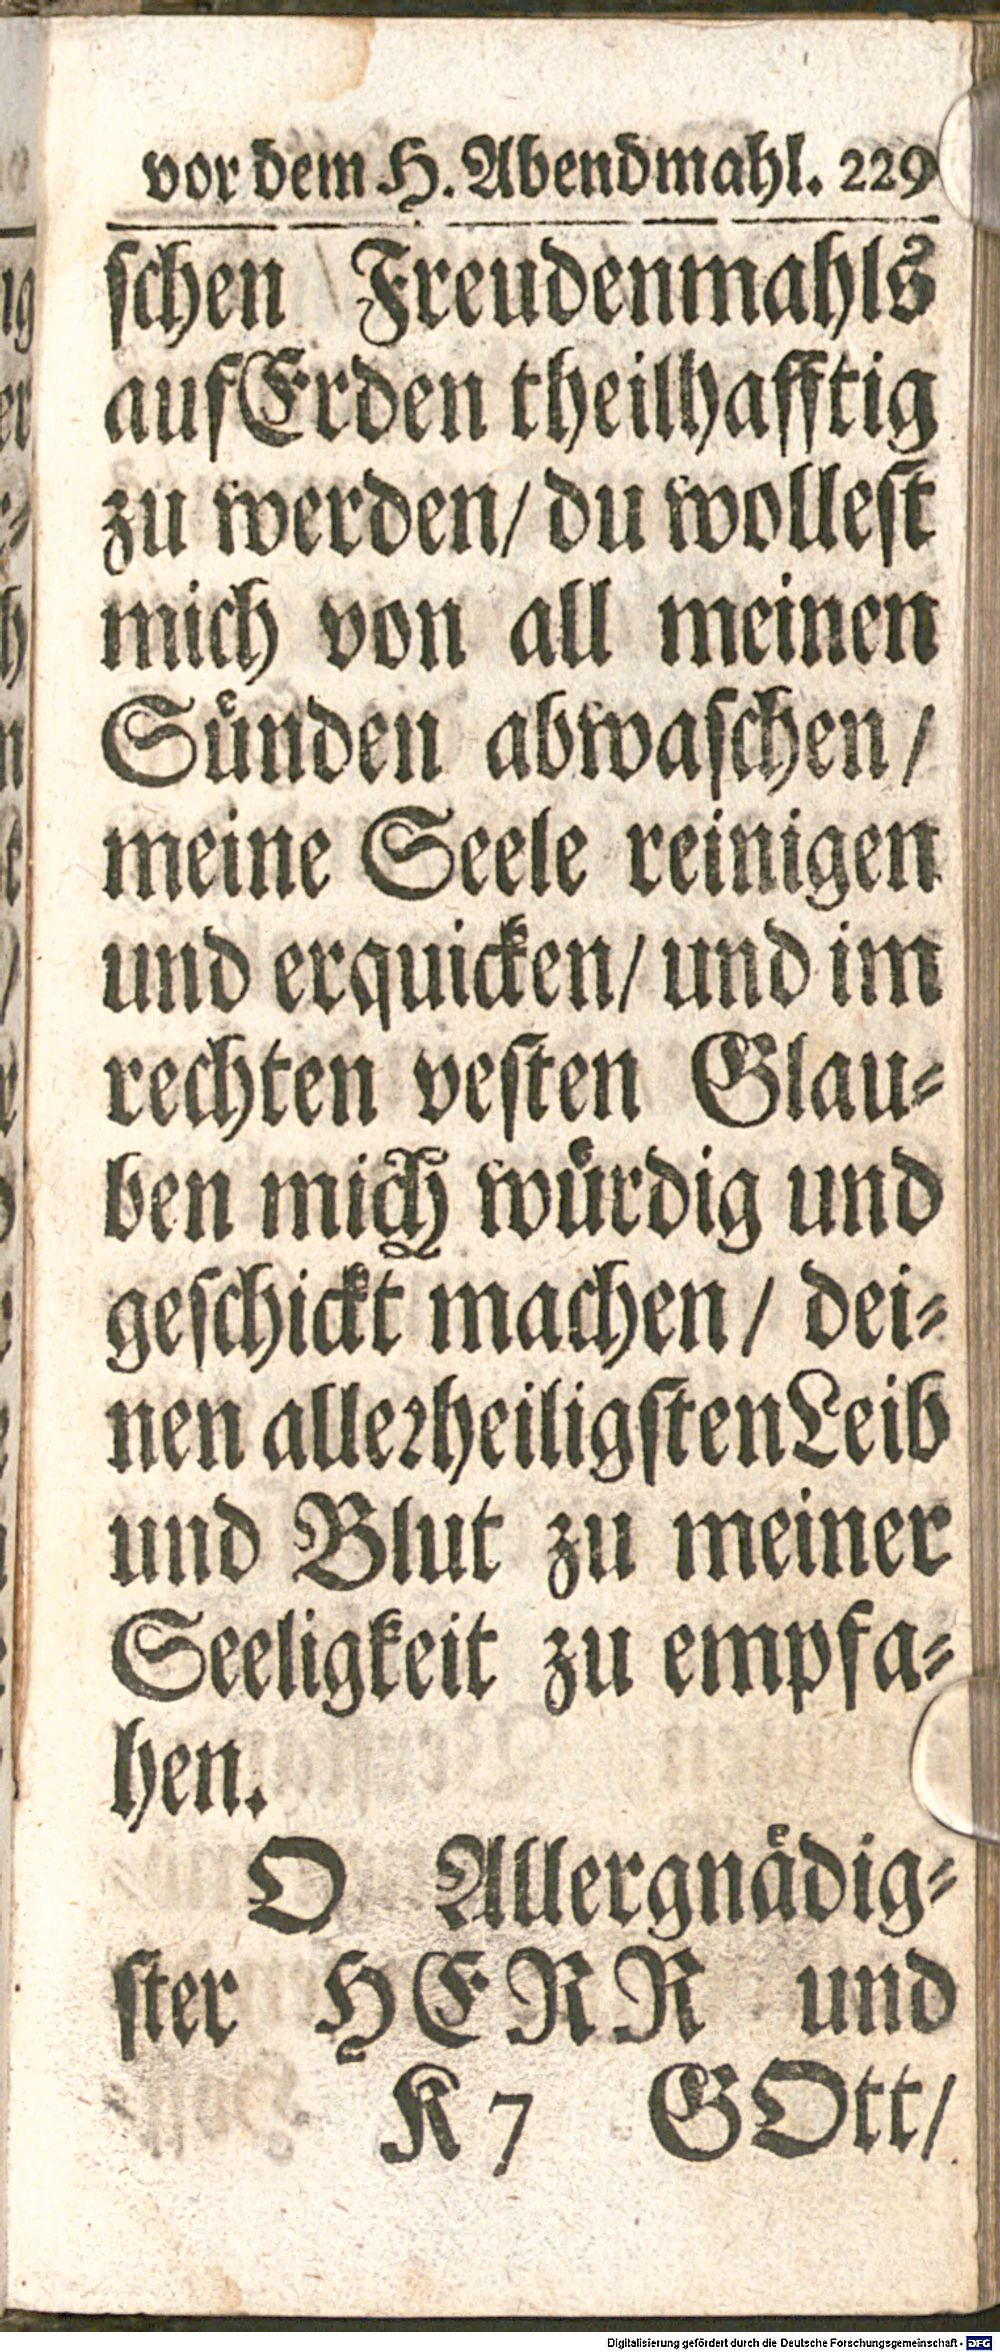 vor dem H. Abendmahl. 229
ſchen Freudenmahls
auf Erden theilhafftig
zu werden/ du wolleſt
mich von all meinen
Suͤnden abwaſchen/
meine Seele reinigen
und erquicken/ und im
rechten veſten Glau⸗
ben mich wuͤrdig und
geſchickt machen/ dei⸗
nen alleꝛheiligſten Leib
und Blut zu meiner
Seeligkeit zu empfa⸗
hen.
O Allergnaͤdig⸗
ſter HERR und
K 7 GOtt/
Digitalisierung gefördert durch die Deutsche Forschungsgemeinschaft - DFG